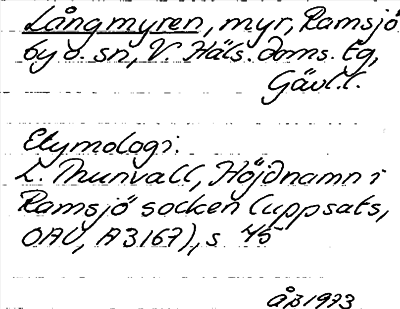 Långmyren, myr, Ramsjö
by o. sn, V. Häls. doms. tg,
Gävl.l.
Etymologi:
L. Thunvall, Höjdnamn i
Ramsjö socken (uppsats,
OAU, A3167), s 45
ÅB 1973